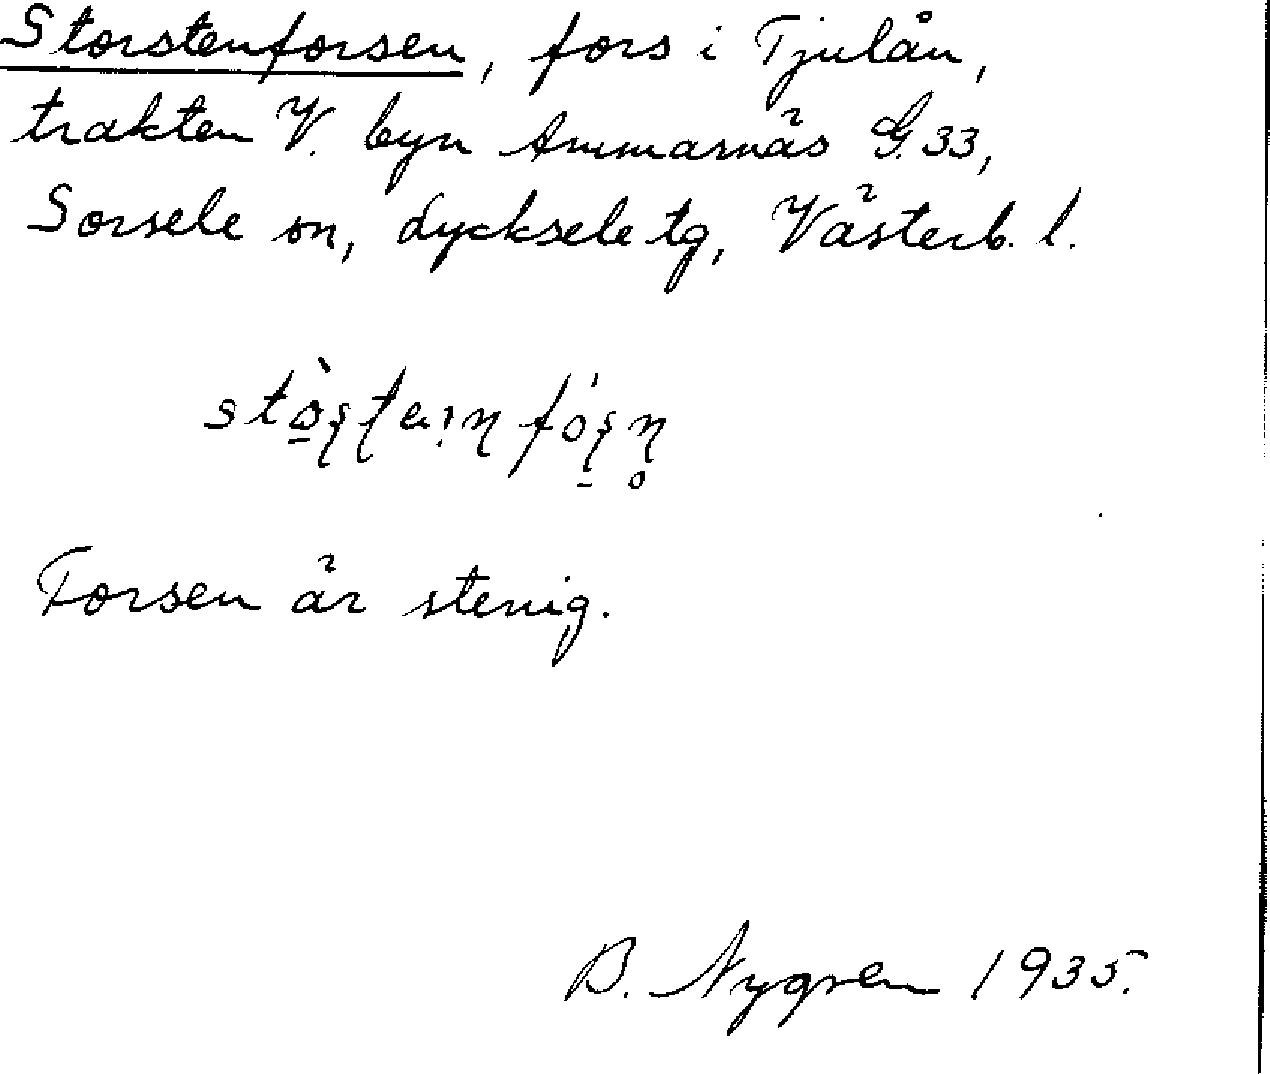 Storstenforsen, fors i Tjulån,
trakten V. byn Ammarnäs G. 33,
Sorsele sn, Lycksele tg, Västerb. l.
Forsen är stenig.
B. Nygren 1935.